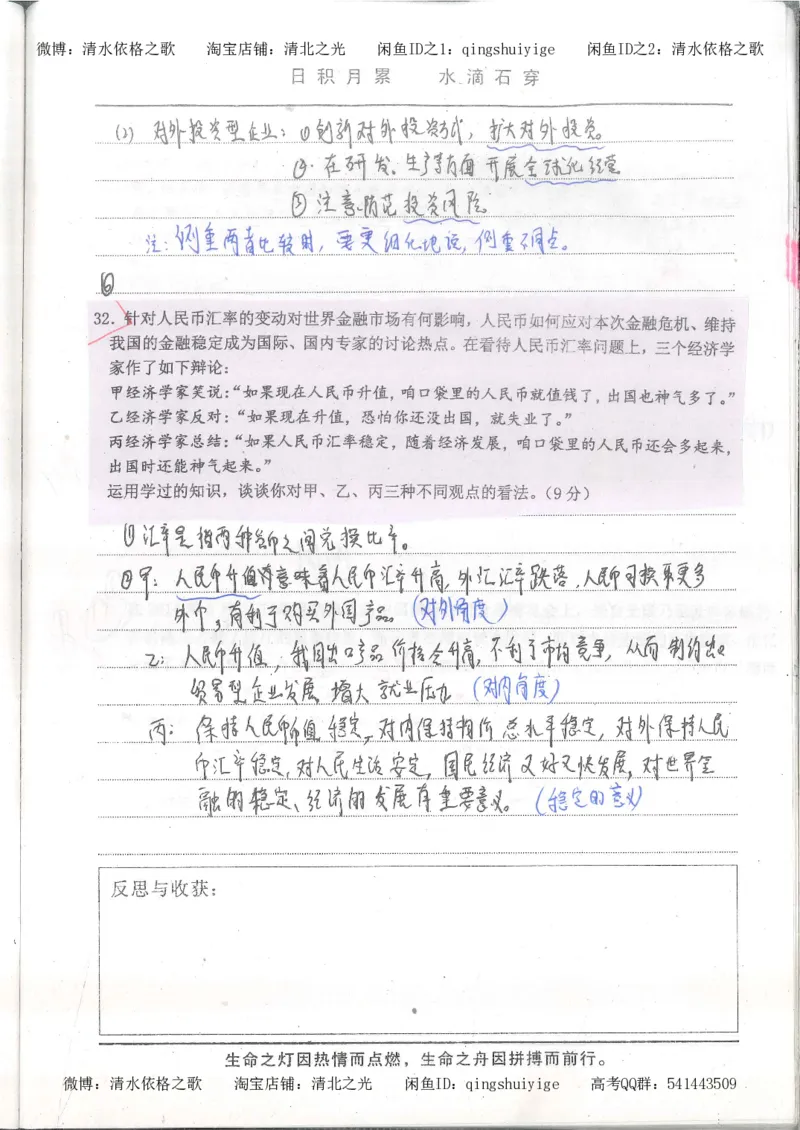 微博：清水依格之歌 淘宝店铺：清北之光 闲鱼ID之1：qingshuiyige 闲鱼ID之2：清水依格之歌
日积月累 水滴石穿
(2) 对外投资型企业：①创新对外投资方式，扩大对外投资。
②在研发、生产等方面开展全球化经营
③注意防范投资风险
注：侧重两者比较时，要更细化地说，侧重不同点。
⑥
32．针对人民币汇率的变动对世界金融市场有何影响，人民币如何应对本次金融危机、维持
我国的金融稳定成为国际、国内专家的讨论热点。在看待人民币汇率问题上，三个经济学
家作了如下辩论：
甲经济学家笑说：“如果现在人民币升值，咱口袋里的人民币就值钱了，出国也神气多了。”
乙经济学家反对：“如果现在升值，恐怕你还没出国，就失业了。”
丙经济学家总结：“如果人民币汇率稳定，随着经济发展，咱口袋里的人民币还会多起来，
出国时还能神气起来。”
运用学过的知识，谈谈你对甲、乙、丙三种不同观点的看法。（9分）
①汇率是指两种货币之间兑换比率。
②甲：人民币升值意味着人民币汇率升高，外汇汇率跌落，人民币可换取更多
外币，有利于购买外国产品。（对外角度）
乙：人民币升值，我国出口产品价格会升高，不利于市场竞争，从而制约出口
贸易型企业发展，增大就业压力（对内角度）
丙：保持人民币币值稳定，对内保持物价总水平稳定，对外保持人民
币汇率稳定，对人民生活安定，国民经济又好又快发展，对世界金
融的稳定、经济的发展有重要意义。（稳定的意义）
反思与收获：
生命之灯因热情而点燃，生命之舟因拼搏而前行。
微博：清水依格之歌 淘宝店铺：清北之光 闲鱼ID：qingshuiyige 高考QQ群：541443509